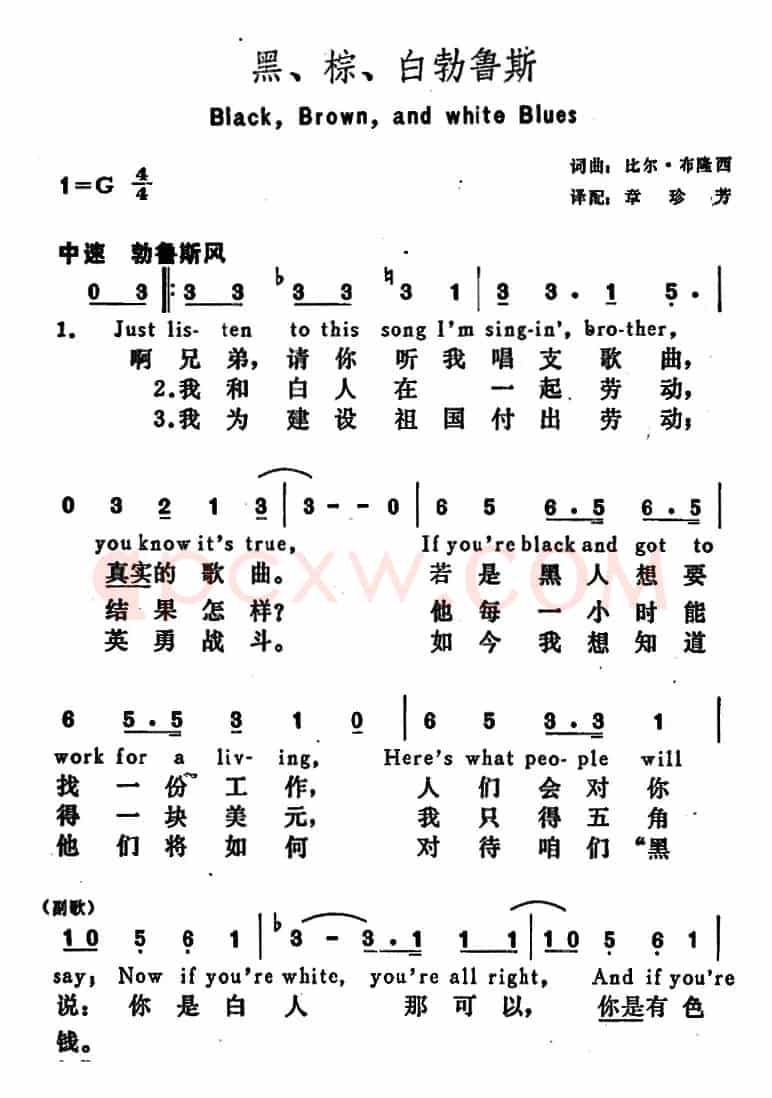 黑、棕、白勃鲁斯
Black, Brown, and white Blues
词曲：比尔·布隆西
1=G 4/4
译配：章珍芳
中速 勃鲁斯风
0 3 ‖: 3 3 ♭3 3 ♮3 1 | 3 3 . 1 5 . |
1. Just lis- ten to this song I'm sing-in', bro-ther,
啊兄弟，请你听我唱支歌曲，
2.我和白人在一起劳动，
3.我为建设祖国付出劳动；
0 3 2 1 3 | 3 - - 0 | 6 5 6 . 5 6 . 5 |
you know it's true, If you're black and got to
真实的歌曲。 若是黑人想要
结果怎样？ 他每一小时能
英勇战斗。 如今我想知道
qpcxw.com
6 5 . 5 3 1 0 | 6 5 3 . 3 1 |
work for a liv- ing, Here's what peo- ple will
找一份工作， 人们会对你
得一块美元， 我只得五角
他们将如何 对待咱们“黑
(副歌)
1 0 5 6 1 | ♭3 - 3 . 1 1 1 | 1 0 5 6 1 |
say; Now if you're white, you're all right, And if you're
说：你是白人 那可以， 你是有色
钱。